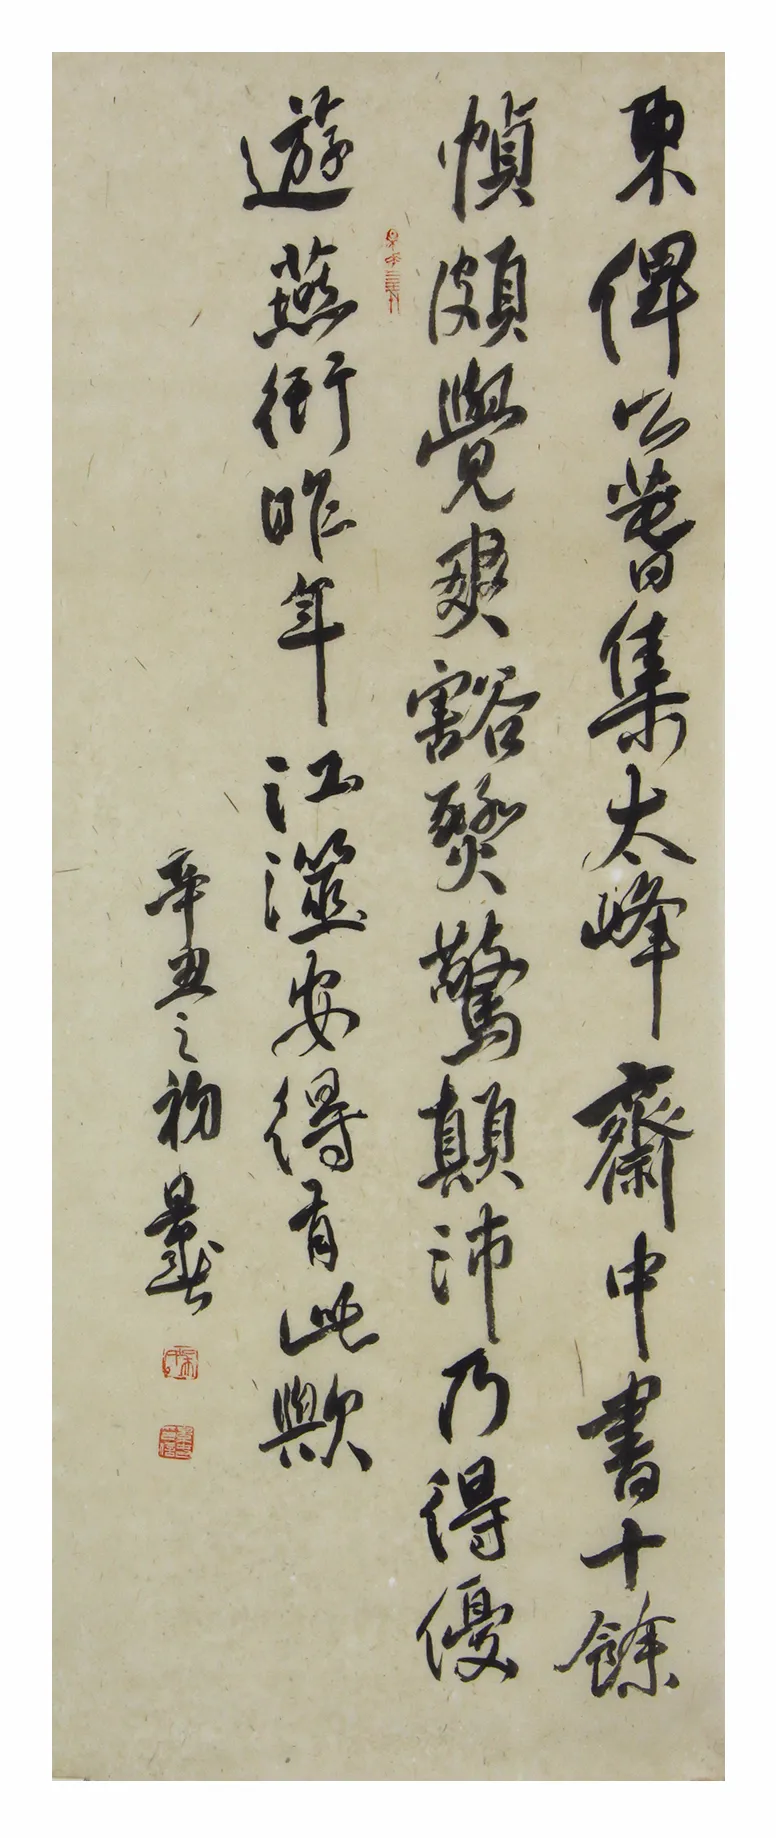 東俾以暮春集太峰齋中書十餘
幀頗覺爽豁熒驚顛沛乃得優
遊燕衎昨年江澨安得有此歟
辛丑之初